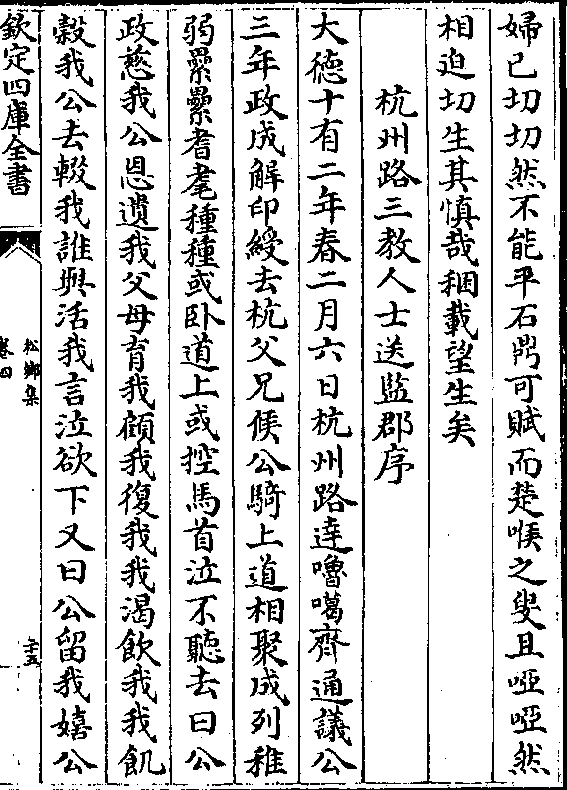 婦已切切然不能平石鼎可賦而楚喉之叟且啞啞然
相迫切生其慎哉稇載望生矣
杭州路三教人士送監郡序
大德十有二年春二月六日杭州路達嚕噶齊通議公
三年政成解印綬去杭父兄候公騎上道相聚成列稚
弱纍纍耆耄種種或卧道上或控馬首泣不聽去曰公
政慈我公恩遺我父母育我顧我復我我渴飲我我飢
穀我公去輟我誰與活我言泣欲下又曰公留我嬉公
欽定四庫全書
松鄉集
卷四
二十五